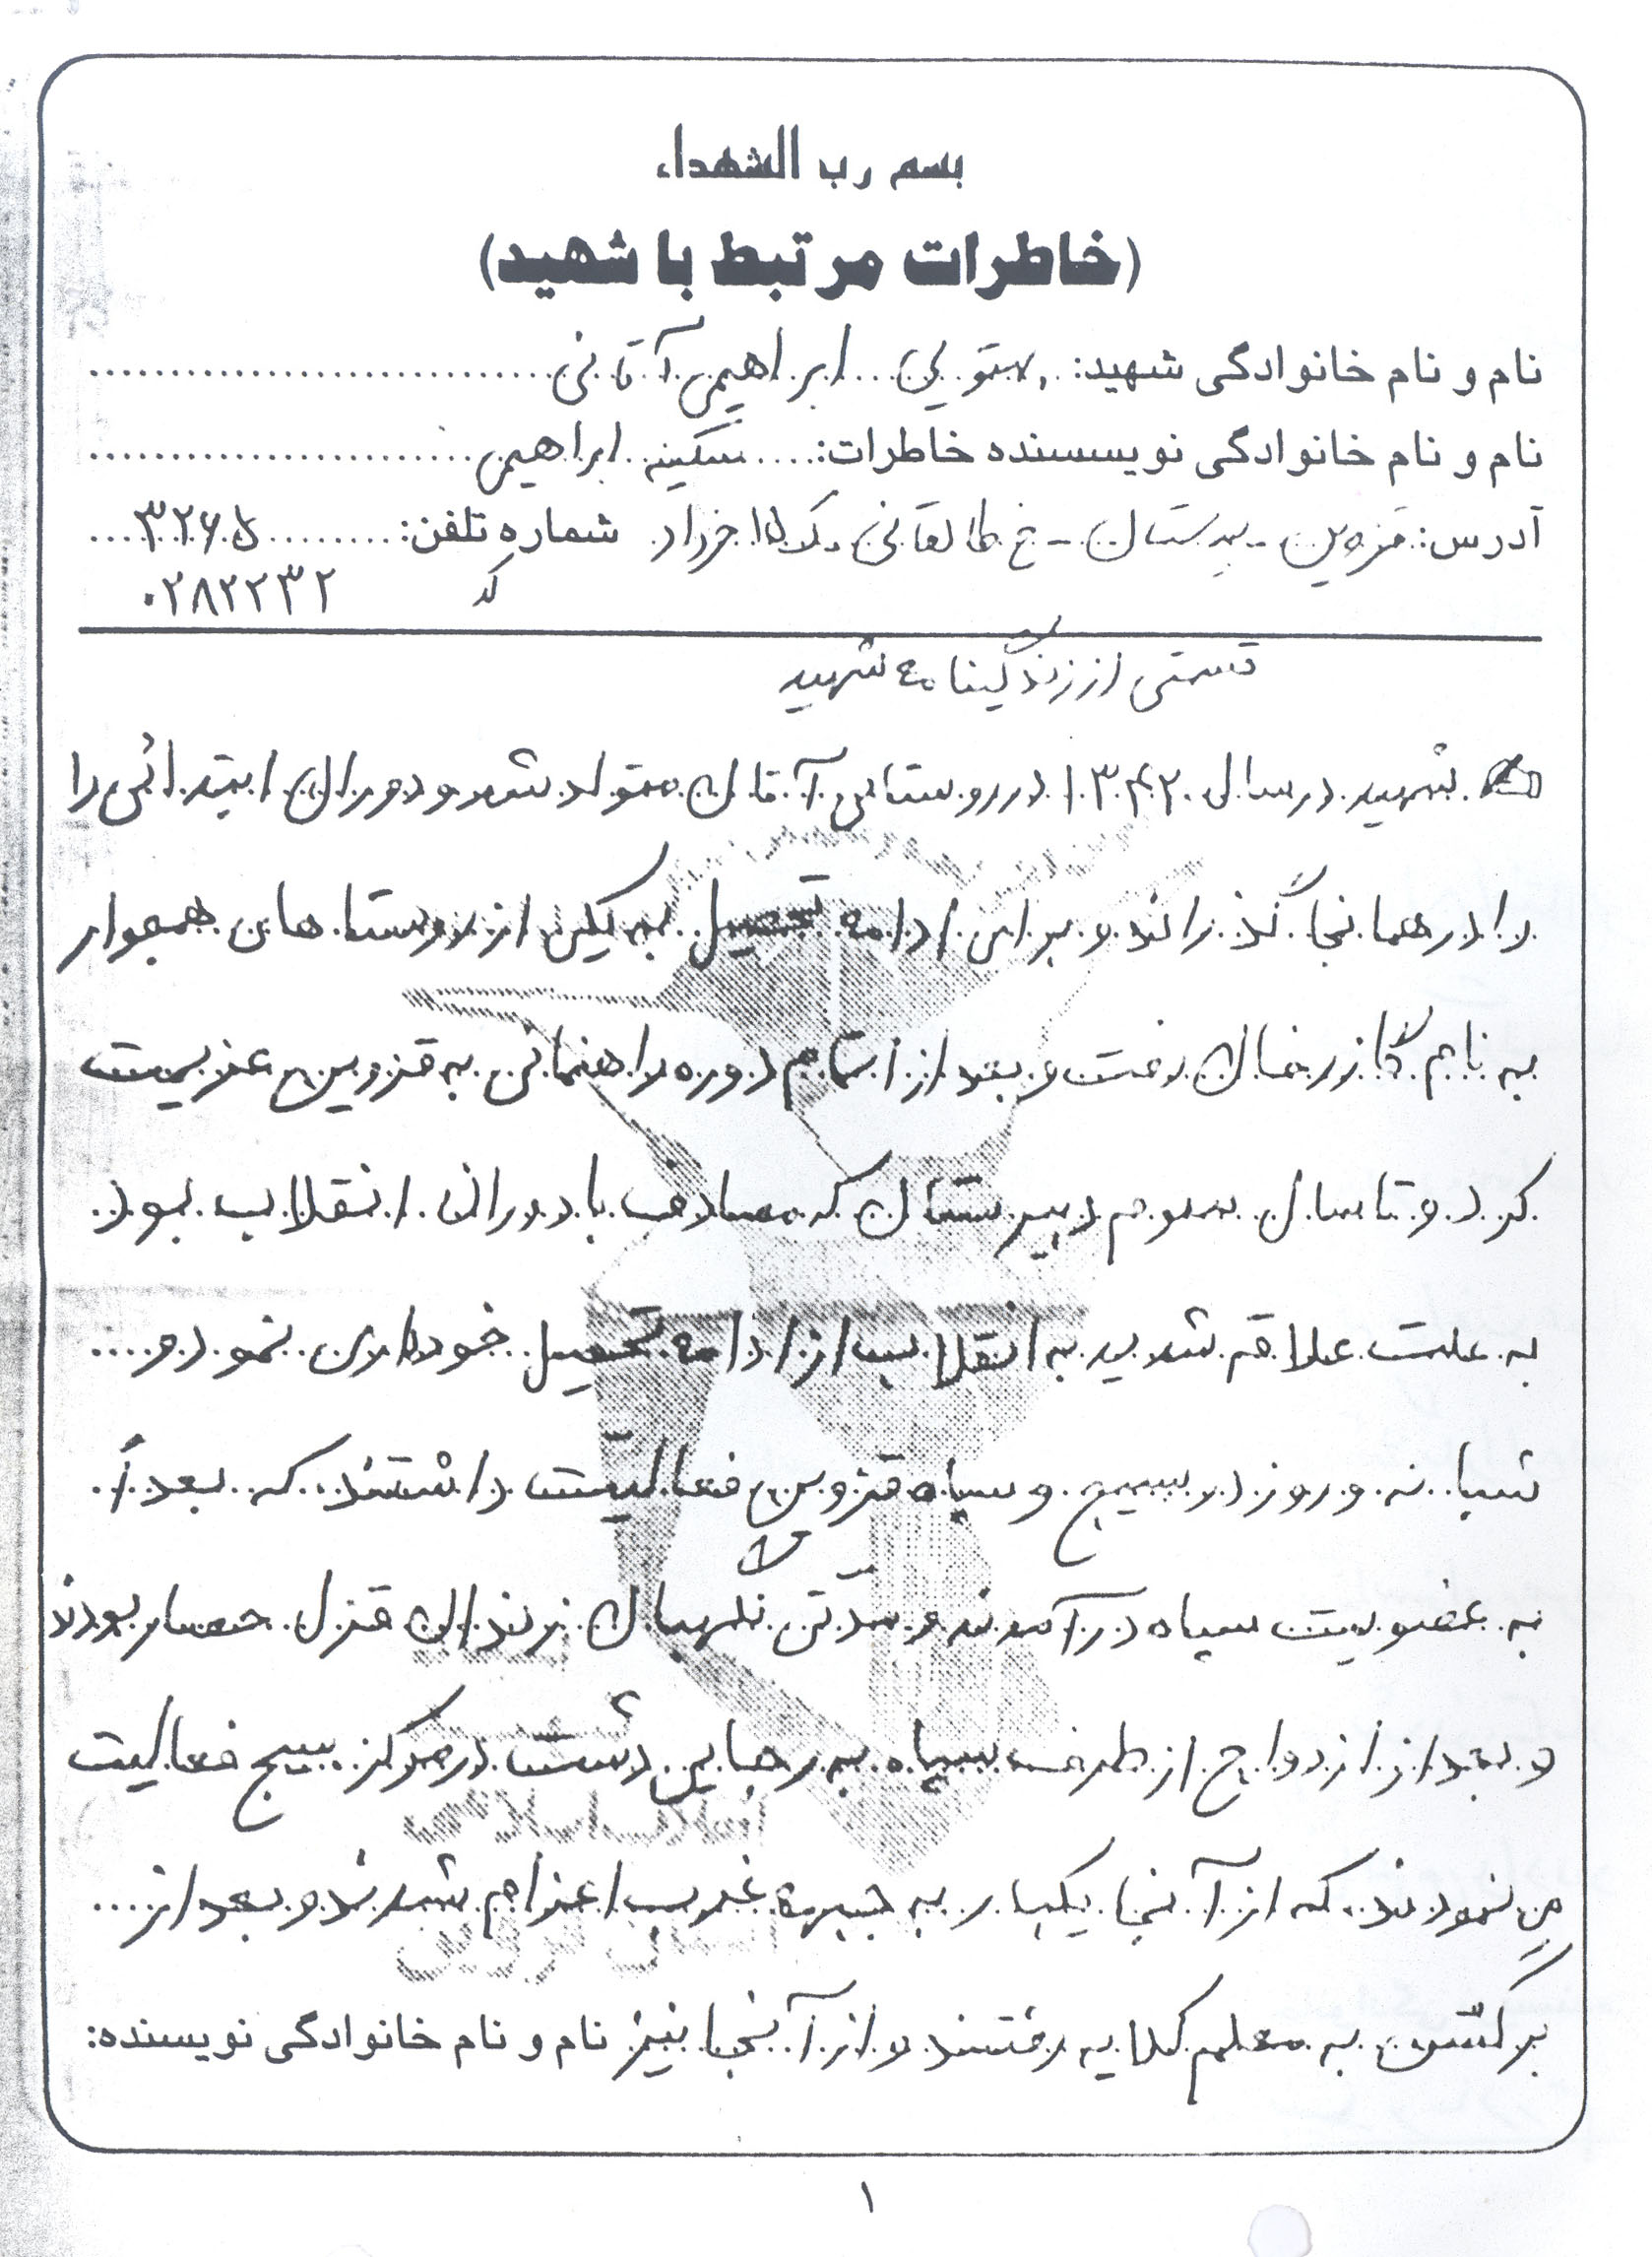 بسم رب الشهداء
(خاطرات مرتبط با شهید)
نام و نام خانوادگی شهید: ابراهیمی آتانی
نام و نام خانوادگی نویسنده خاطرات: سکینه ابراهیمی
آدرس: قزوین - - خ طالقانی ک ۱۵ خرداد شماره تلفن: ۳۲۶۵
کد ۰۲۸۲۲۳۲
قسمتی از زندگینامه شهید
شهید در سال ۱۳۴۲ در روستای آتان متولد شد و دوران ابتدائی را
را در همانجا گذراند و برای ادامه تحصیل به یکی از روستاهای همجوار
به نام گازرخان رفت و بعد از اتمام دوره راهنمائی به قزوین عزیمت
کرد و تا سال سوم دبیرستان که مصادف با دوران انقلاب بود
به علت علاقه شدید به انقلاب از ادامه تحصیل خودداری نمود و
شبانه و روز در بسیج و سپاه قزوین فعالیت داشتند که بعداً
به عضویت سپاه در آمدند و مدتی نگهبان زندان قزل حصار بودند
و بعد از ازدواج از طرف سپاه به رجایی دشت در مرکز بسیج فعالیت
می نمودند که از آنجا یکبار به جبهه غرب اعزام شدند و بعد از
برگشتن به معلم کلایه رفتند و از آنجا نیز نام و نام خانوادگی نویسنده:
۱